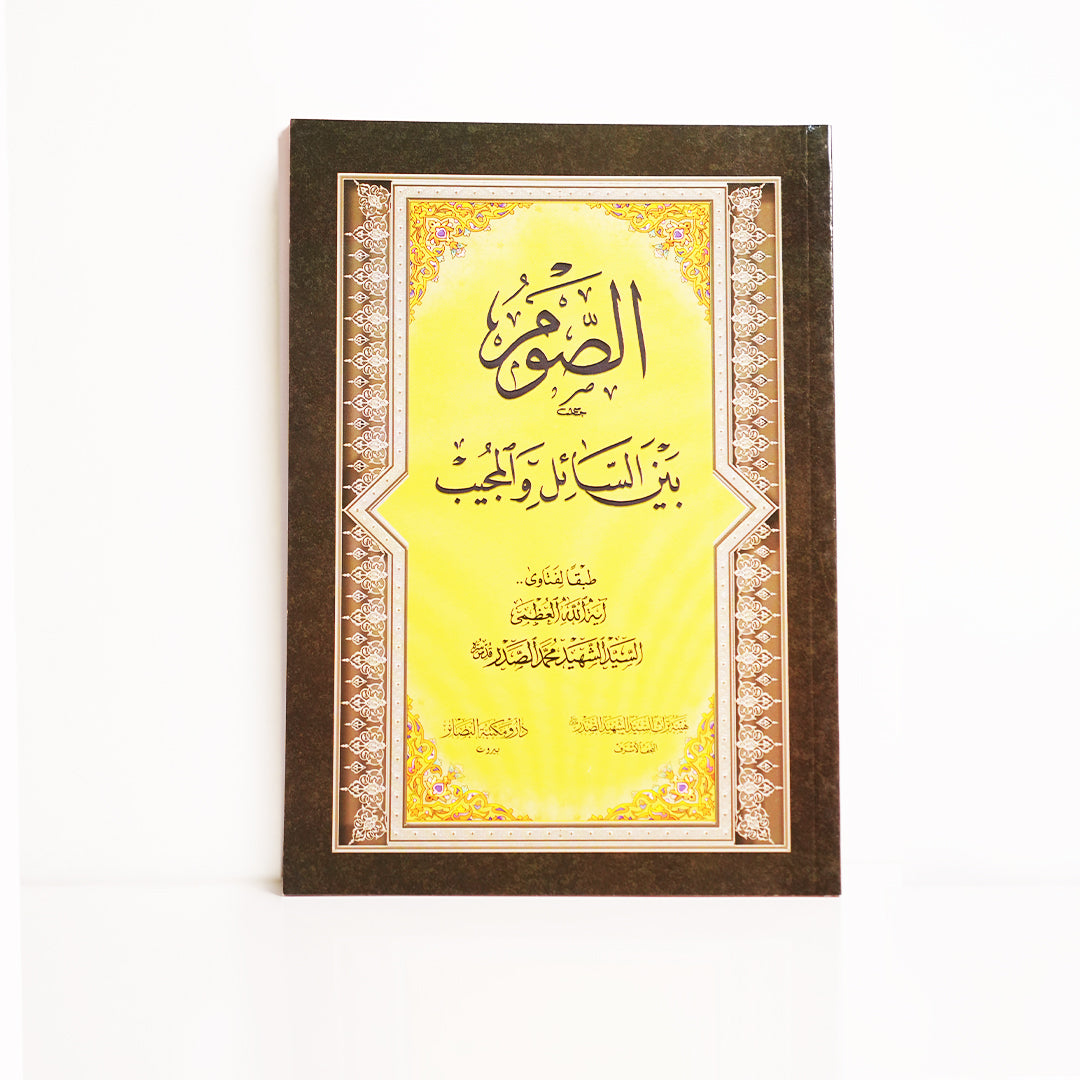 الصَّوْمُ
بَيْنَ السَّائِلِ وَالْمُجِيبْ
طبقًا لفتاوى ..
آية الله العظمى
السيد الشهيد محمد الصدر
هيئة تراث السيد الشهيد الصدر
النجف الأشرف
دار ومكتبة البصائر
بيروت